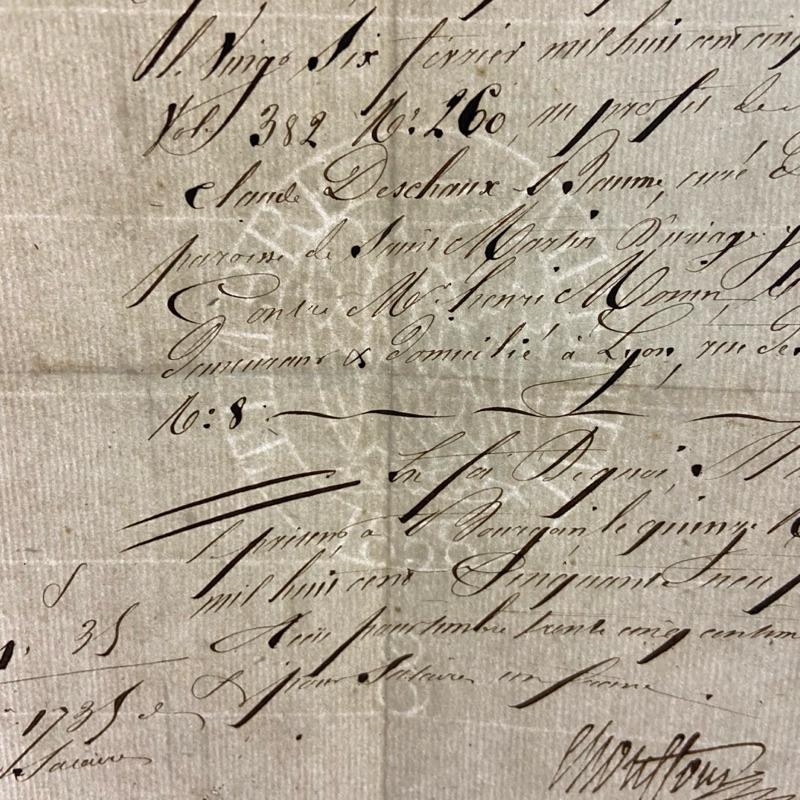 le Vingt Six fevrier mil huit cent cinq
Vol. 382 N.º 260, au profit de
Claude Deschaux - Baume, curé
paroisse de Saint Martin D'uriage
Contre Mr. henri Monin,
Demeurant & Domicilié à Lyon, rue
N.º 8.
En foi Dequoi,
présent à Bourgoin le quinze
mil huit cent Cinquante neuf
Reçu pour timbre trente cinq centim
& pour Salaire un franc.
35
1 35
Salaire